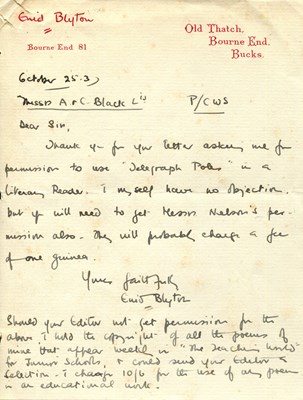 Enid Blyton
Bourne End 81
Old Thatch,
Bourne End,
Bucks.
October 25. 37
Messrs A & C. Black Ltd
P/CWS
Dear Sir,
Thank you for your letter asking me for
permission to use "Telegraph Poles" in a
Literary Reader. I myself have no objection,
but you will need to get Messrs Nelson's per-
mission also. They will probably charge a fee
of one guinea.
Yours faithfully
Enid Blyton
Should your Editor not get permission for the
above I hold the copyright of all the poems of
mine that appear weekly in "The Teachers World"
for Junior Schools & could send your Editor a
selection. I charge 10/6 for the use of any poem
in an educational work.